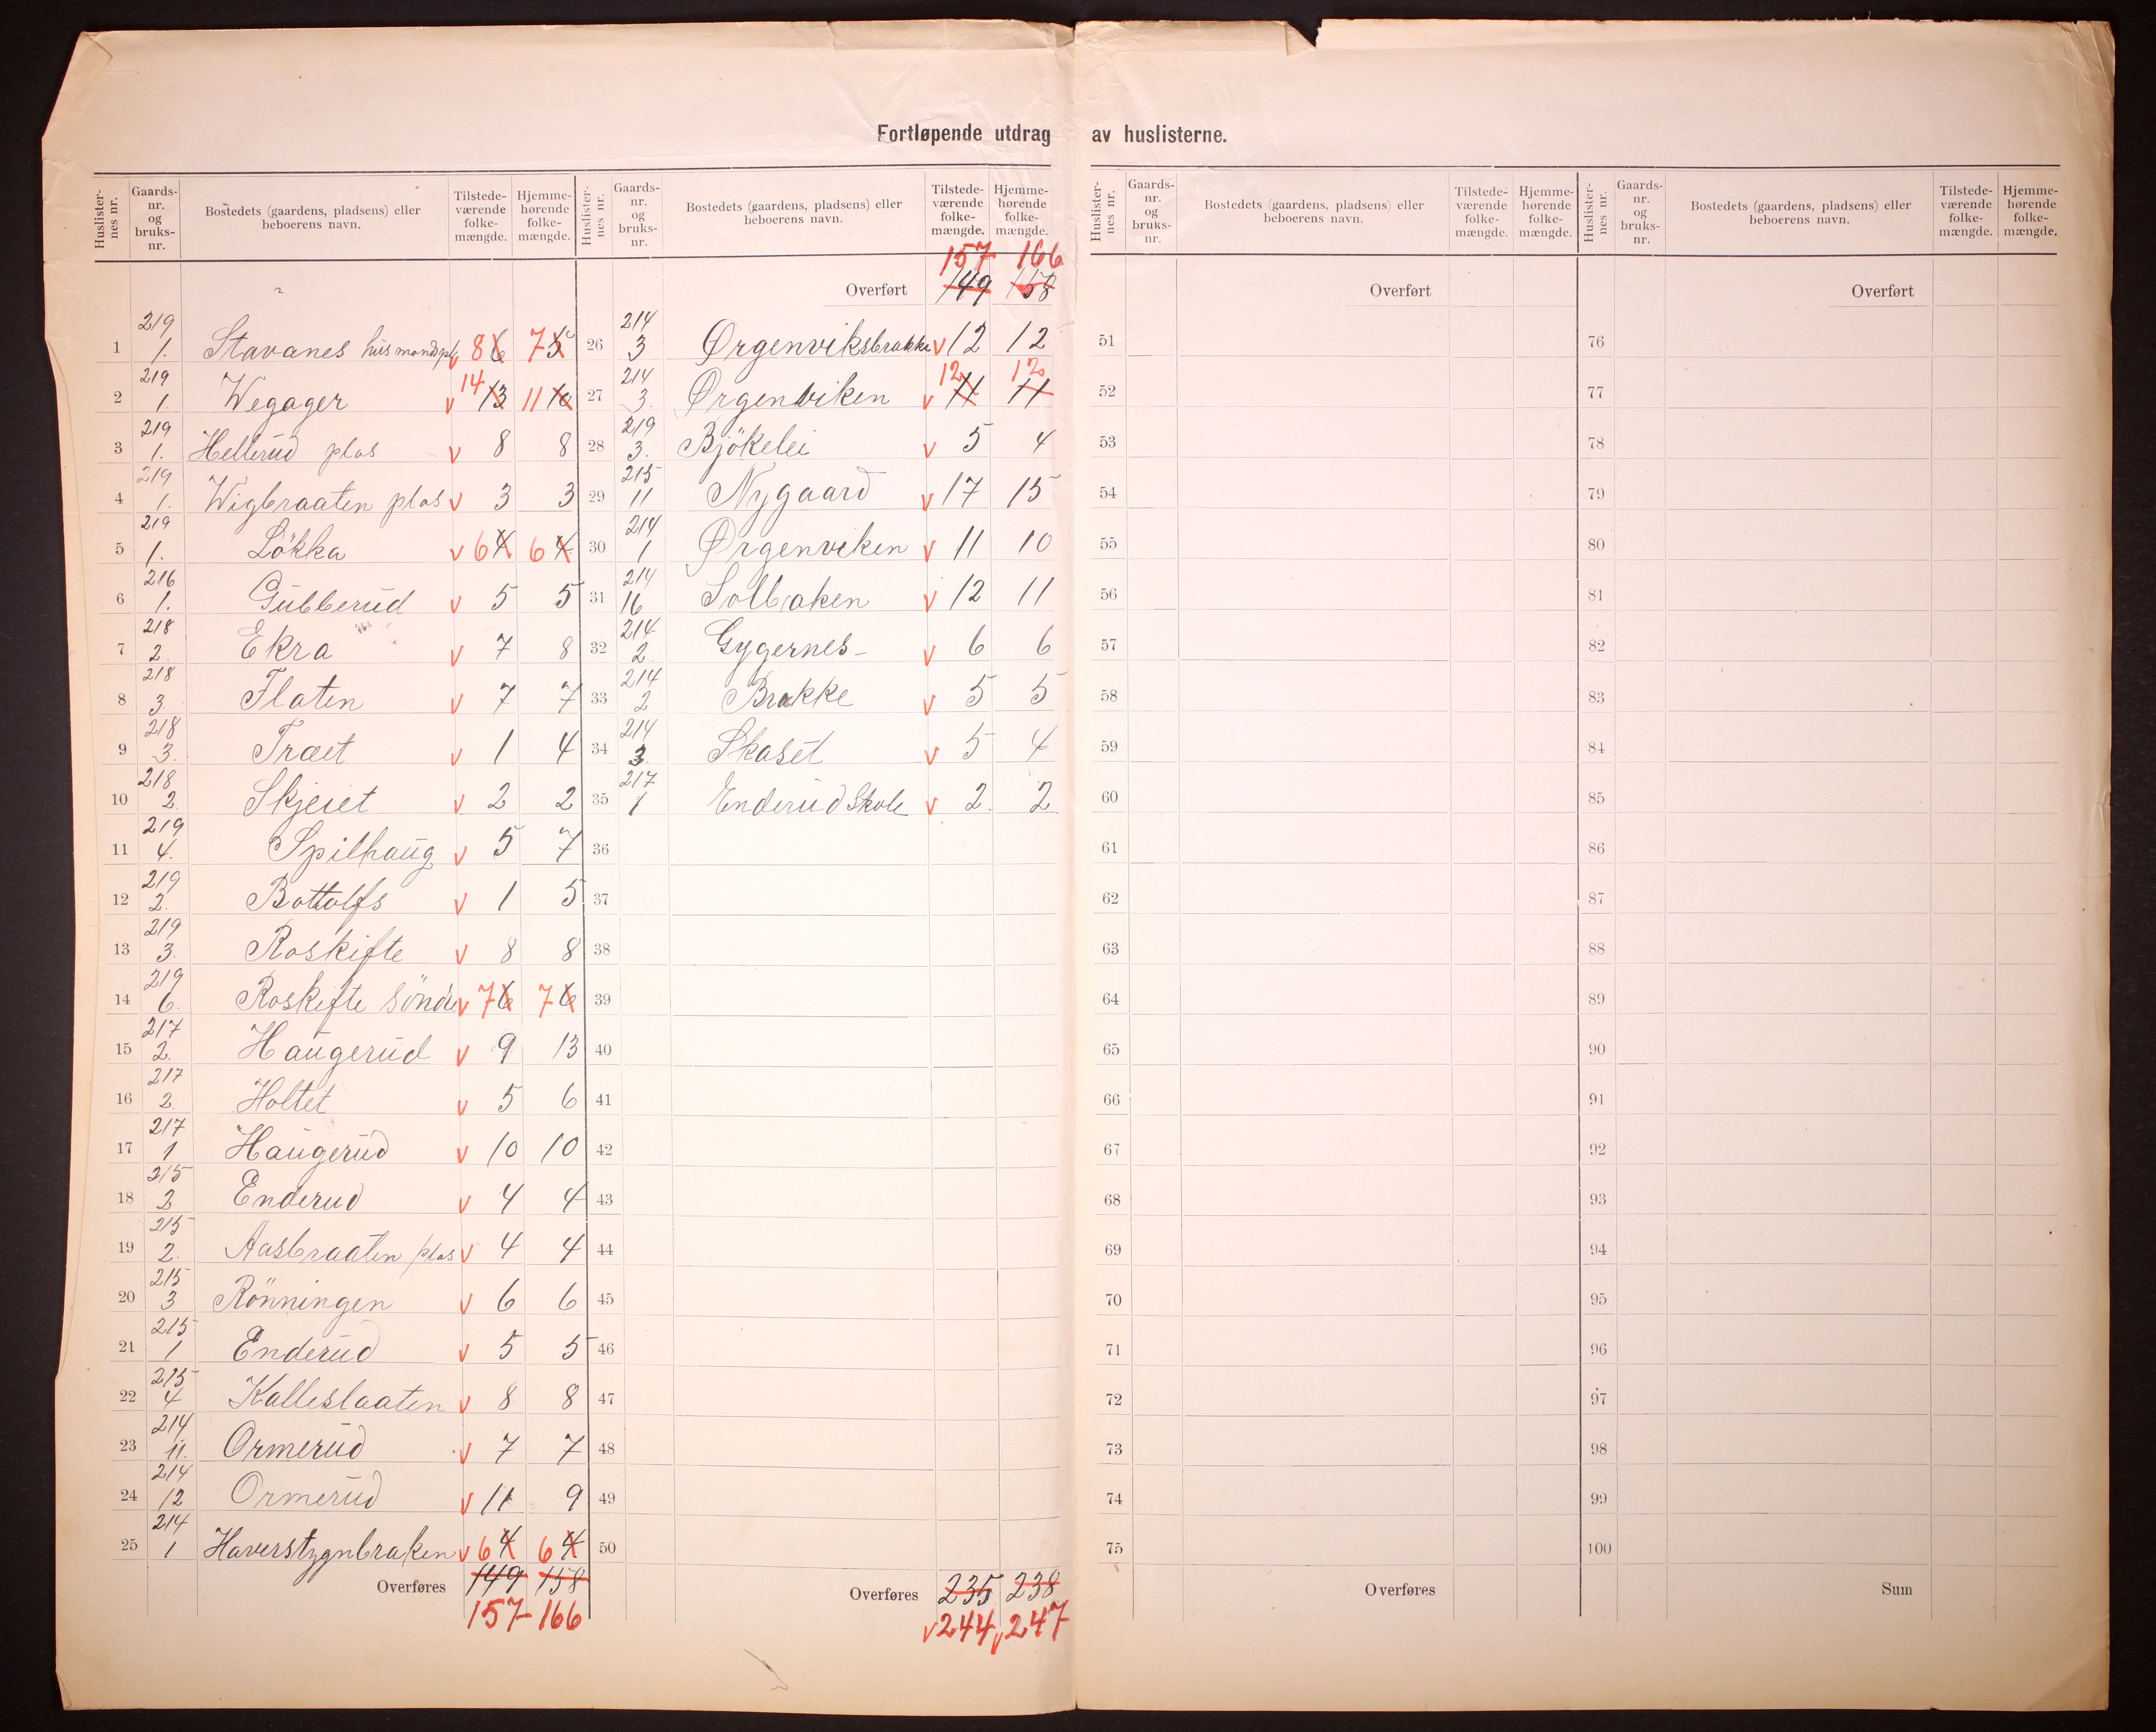 Fortløpende utdrag av huslisterne.
Huslister-nes nr. Gaards-nr. og bruks-nr. Bostedets (gaardens, pladsens) eller beboerens navn. Tilstede-værende folke-mængde. Hjemme-hørende folke-mængde. Huslister-nes nr. Gaards-nr. og bruks-nr. Bostedets (gaardens, pladsens) eller beboerens navn. Tilstede-værende folke-mængde. Hjemme-hørende folke-mængde.
157 166
Overført 149 158
1 219 1. Stavanes husmandspl v 8 6 7 5
2 219 1. Wegager v 14 13 11 10
3 219 1. Hellerud plas v 8 8
4 219 1. Wigbraaten plas v 3 3
5 219 1. Lökka v 6 4 6 4
6 216 1. Gubberud v 5 5
7 218 2. Ekra v 7 8
8 218 3. Flaten v 7 7
9 218 3. Træet v 1 4
10 218 2. Skjeiet v 2 2
11 219 4. Spilhaug v 5 7
12 219 2. Bottolfs v 1 5
13 219 3. Roskifte v 8 8
14 219 6. Roskifte söndre v 7 6 7 6
15 217 2. Haugerud v 9 13
16 217 2. Holtet v 5 6
17 217 1 Haugerud v 10 10
18 215 2 Enderud v 4 4
19 215 2. Aasbraaten plas v 4 4
20 215 3 Rönningen v 6 6
21 215 1 Enderud v 5 5
22 215 4 Kalleslaaten v 8 8
23 214 11. Ormerud v 7 7
24 214 12 Ormerud v 11 9
25 214 1 Haverstygnbraken v 6 4 6 4
Overføres 149 158
157 166
26 214 3 Ørgenviksbrakke v 12 12
27 214 3. Ørgenviken v 12 11 12 11
28 219 3. Bjökelei v 5 4
29 215 11 Nygaard v 17 15
30 214 1 Ørgenviken v 11 10
31 214 16 Solbaken v 12 11
32 214 2 Gygernes v 6 6
33 214 2 Brakke v 5 5
34 214 3 Skaset v 5 4
35 217 1 Enderud Skole v 2. 2.
36
37
38
39
40
41
42
43
44
45
46
47
48
49
50
Overføres 235 238
v 244 v 247
Huslister-nes nr. Gaards-nr. og bruks-nr. Bostedets (gaardens, pladsens) eller beboerens navn. Tilstede-værende folke-mængde. Hjemme-hørende folke-mængde. Huslister-nes nr. Gaards-nr. og bruks-nr. Bostedets (gaardens, pladsens) eller beboerens navn. Tilstede-værende folke-mængde. Hjemme-hørende folke-mængde.
Overført
51
52
53
54
55
56
57
58
59
60
61
62
63
64
65
66
67
68
69
70
71
72
73
74
75
Overføres
Overført
76
77
78
79
80
81
82
83
84
85
86
87
88
89
90
91
92
93
94
95
96
97
98
99
100
Sum